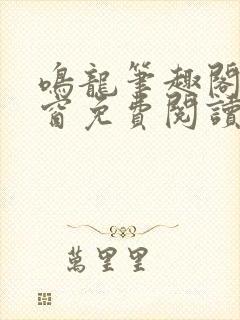 鳴龍筆趣閣
窗免費閱讀
萬里里